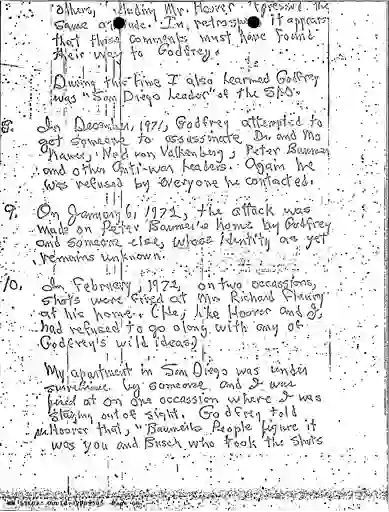 others, including Mr. Hoover expressed the
same attitude. In retrospect it appears
that these comments must have found
their way to Godfrey.
During this time I also learned Godfrey
was "San Diego Leader" of the SAO.
8. In December, 1971, Godfrey attempted to
get someone to assassinate Dr. and Ms
Ned von Valkenberg, Peter Bohmer
and other Anti-war leaders. Again he
was refused by everyone he contacted.
9. On January 6, 1972, the attack was
made on Peter Baumeils home by Godfrey
and someone else, whose identity as yet
remains unknown.
10. In February, 1972, on two occassions,
shots were fired at Mr. Richard Fleury
at his home. (He, like Hoover and I,
had refused to go along with any of
Godfrey's wild ideas.)
My apartment in San Diego was under
surveilance by someone and I was
fired at on one occassion where I was
staying out of sight. Godfrey told
Hoover that, "Baumeils People figure it
was you and Busch who took the shots